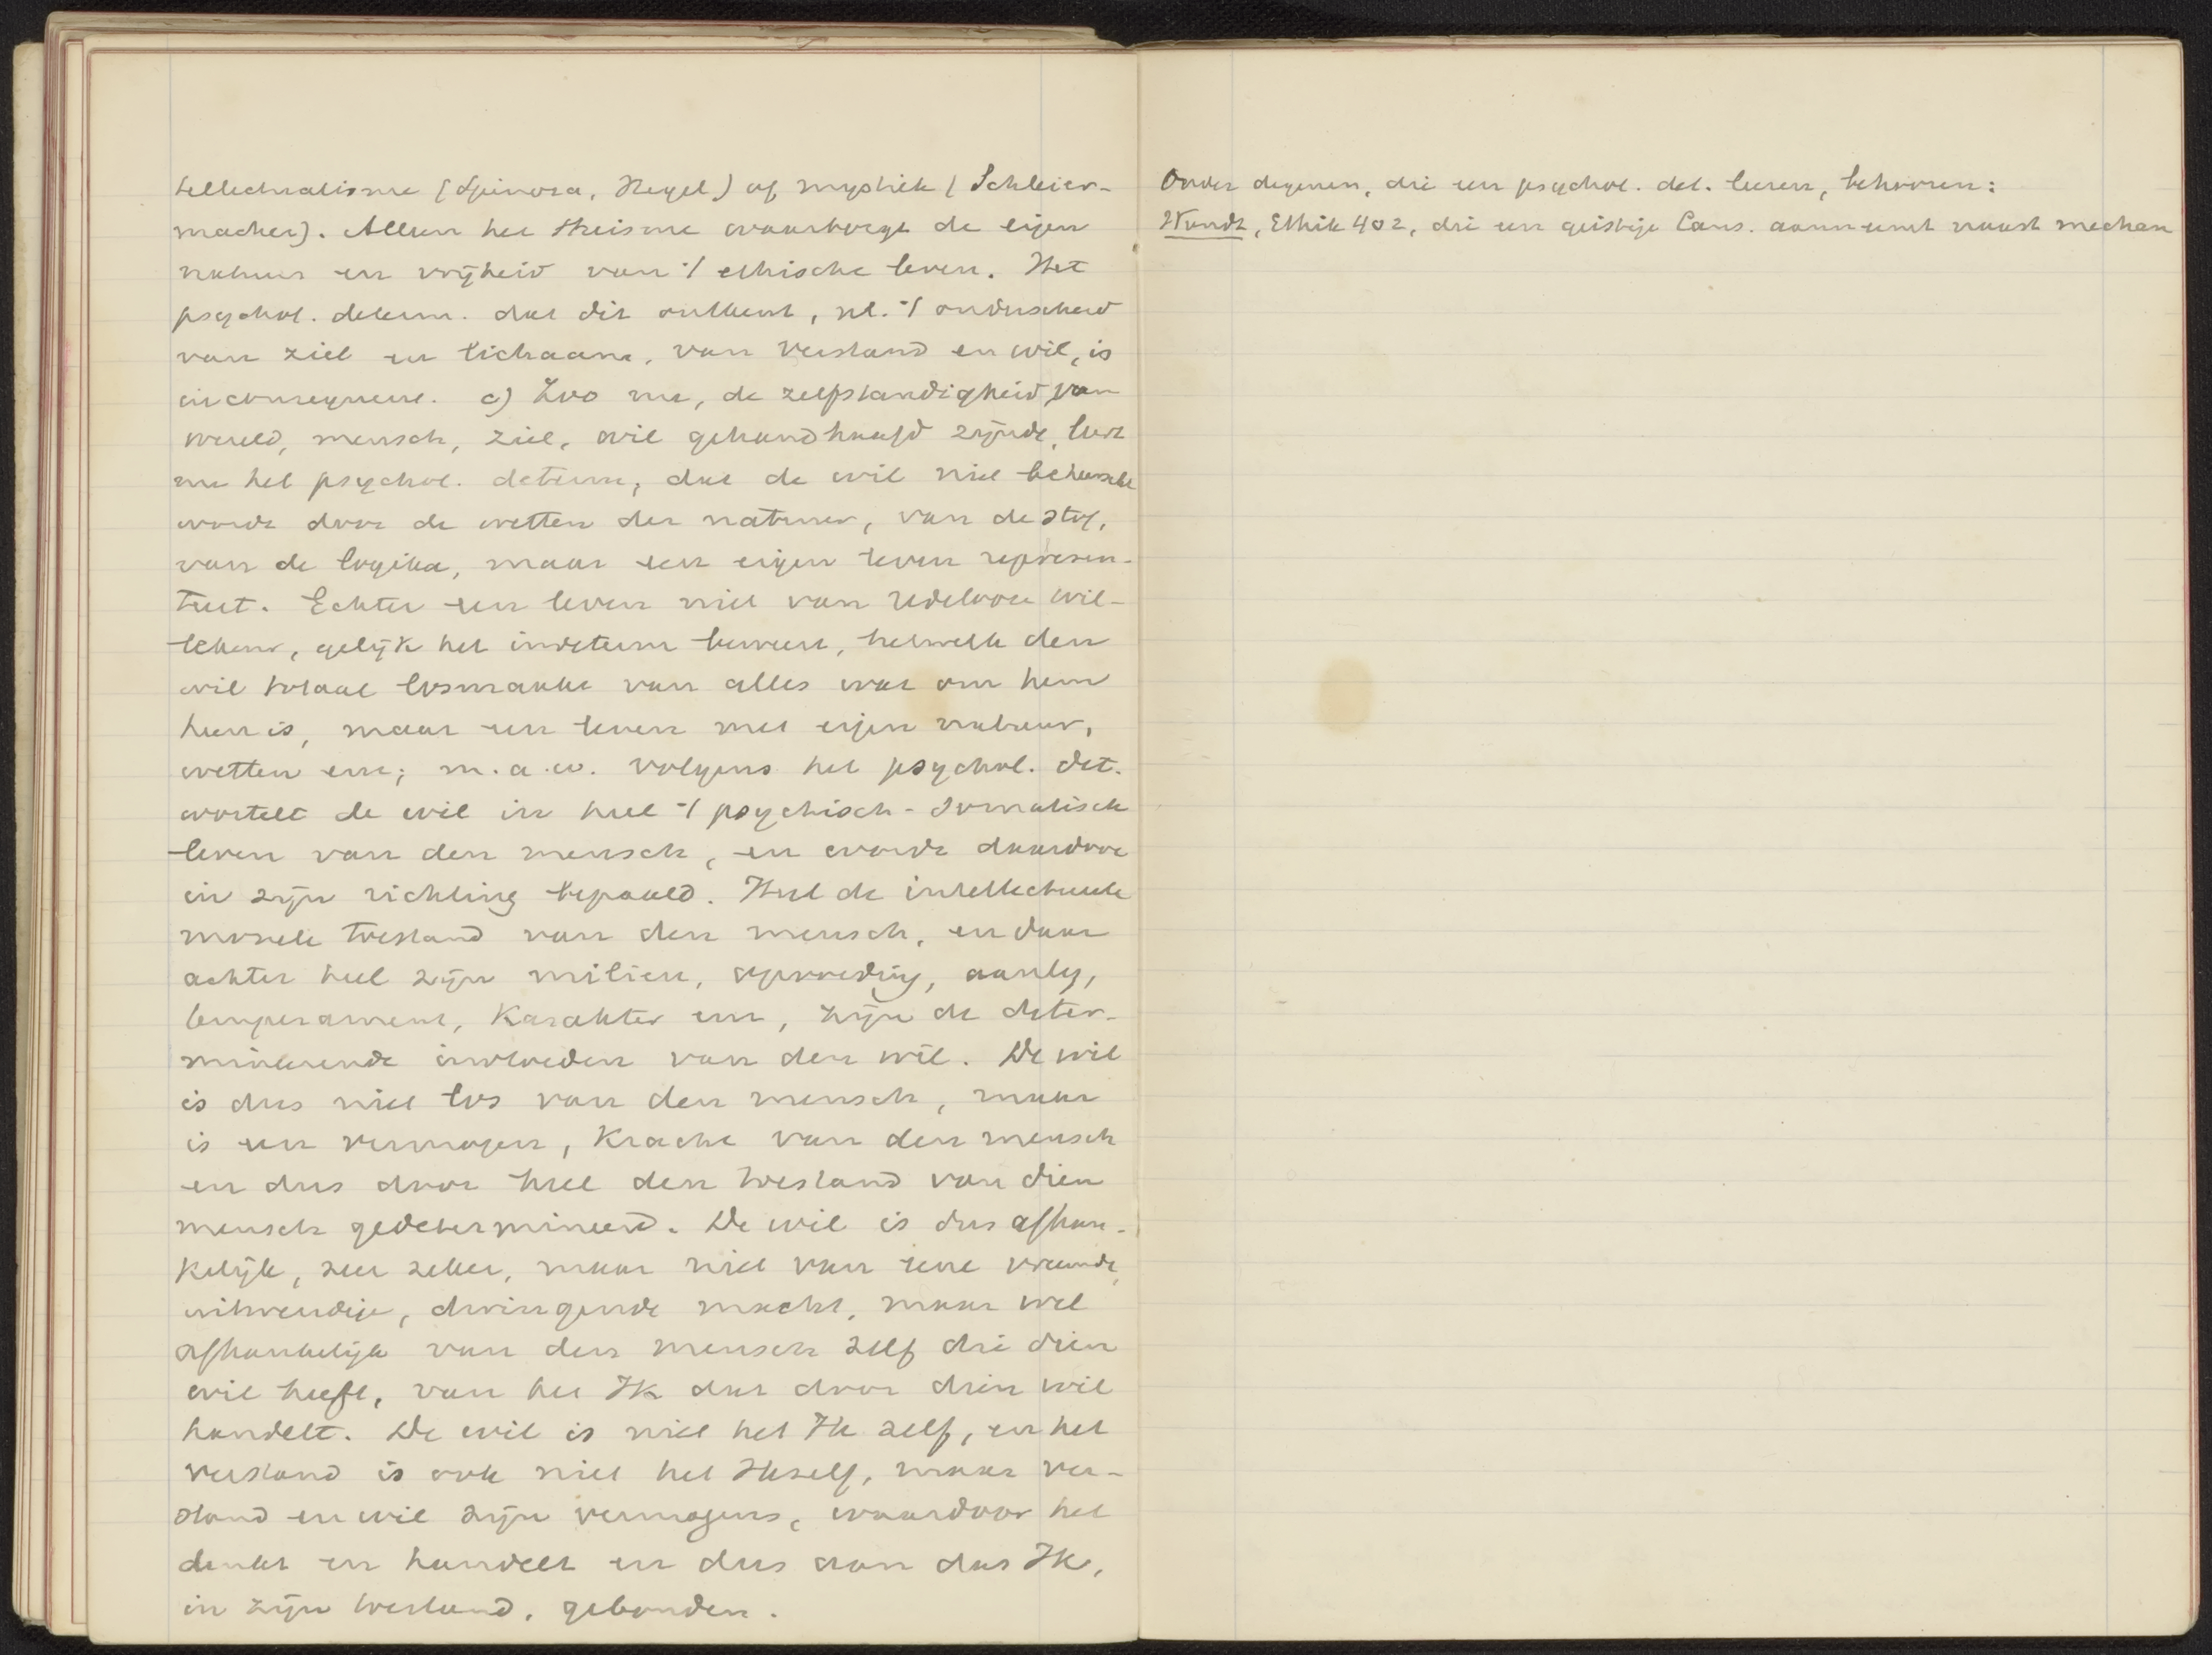 tellectualisme (Spinoza, Hegel) of mystiek (Schleier-
macher). Alleen het Theisme waarborgt de eigen
natuur en vrijheid van 't ethische leven. Het
psychol. determ. dat dit ontkent, nl. 't onderscheid
van ziel en lichaam, van verstand en wil, is
inconsequent. c) Zoo nu, de zelfstandigheid van
wereld, mensch, ziel, wil gehandhaafd zijnde, leert
nu het psychol. determ, dat de wil niet beheerscht
wordt door de wetten der natuur, van de stof,
van de logika, maar een eigen leven represen-
teert. Echter een leven niet van redelooze wil-
lekeur, gelijk het indeterm beweert, hetwelk den
wil totaal losmaakt van alles wat om hem
heen is, maar een leven met eigen natuur,
wetten enz; m.a.w. volgens het psychol. det.
wortelt de wil in heel 't psychisch-somatisch
leven van den mensch, en wordt daardoor
in zijn richting bepaald. Heel de intellectueele
moreele toestand van den mensch, en daar
achter heel zijn milieu, opvoeding, aanleg,
temperament, karakter enz, zijn de deter-
mineerende invloeden van den wil. De wil
is dus niet los van den mensch, maar
is een vermogen, kracht van den mensch
en dus door heel den toestand van dien
mensch gedetermineerd. De wil is dus afhan-
kelijk, zeer zeker, maar niet van eene vreemde,
uitwendige, dwingende macht, maar wel
afhankelijk van den mensch zelf die dien
wil heeft, van het Ik dat door dien wil
handelt. De wil is niet het Ik zelf, en het
verstand is ook niet het Ikzelf, maar ver-
stand en wil zijn vermogens, waardoor het
denkt en handelt en dus aan dat Ik,
in zijn toestand, gebonden.
Onder degenen, die een psychol. det. leeren, behooren:
Wundt, Ethik 402, die een geistige Caus. aanneemt naast mechan